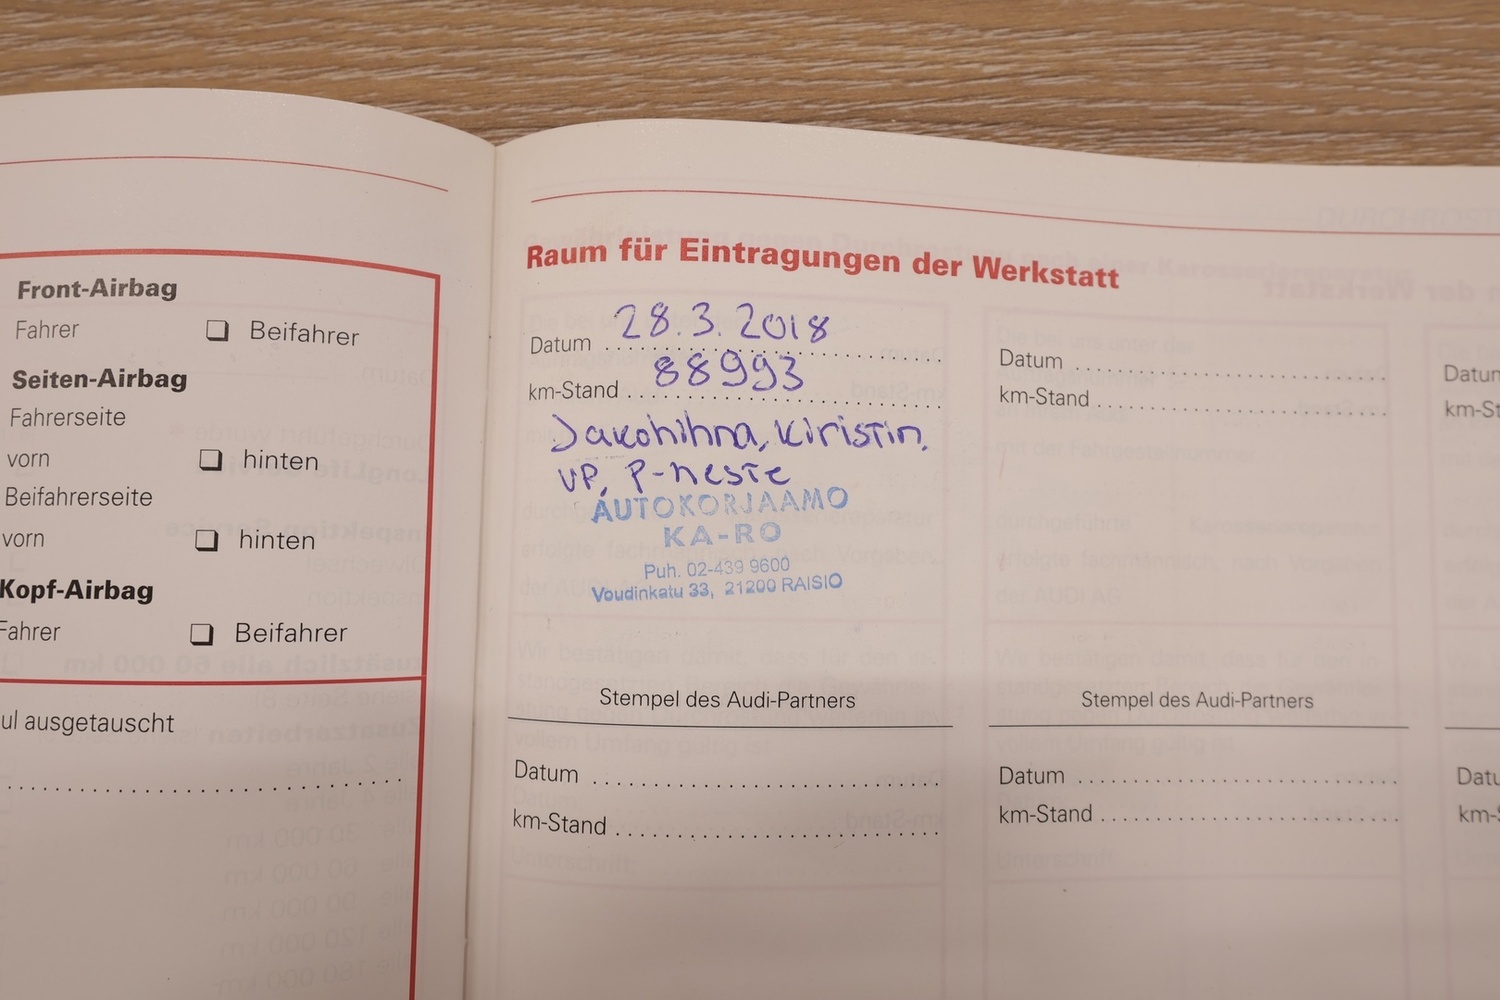 Front-Airbag
Fahrer ❏ Beifahrer
Seiten-Airbag
Fahrerseite
vorn ❏ hinten
Beifahrerseite
vorn ❏ hinten
Kopf-Airbag
Fahrer ❏ Beifahrer
ul ausgetauscht
Raum für Eintragungen der Werkstatt
Datum 28.3.2018
km-Stand 88993
Jakohihna, Kiristin,
VP, P-neste
AUTOKORJAAMO
KA-RO
Puh. 02-439 9600
Voudinkatu 33, 21200 RAISIO
Stempel des Audi-Partners
Datum
km-Stand
Datum
km-Stand
Stempel des Audi-Partners
Datum
km-Stand
Datum
km-St
Datu
km-S